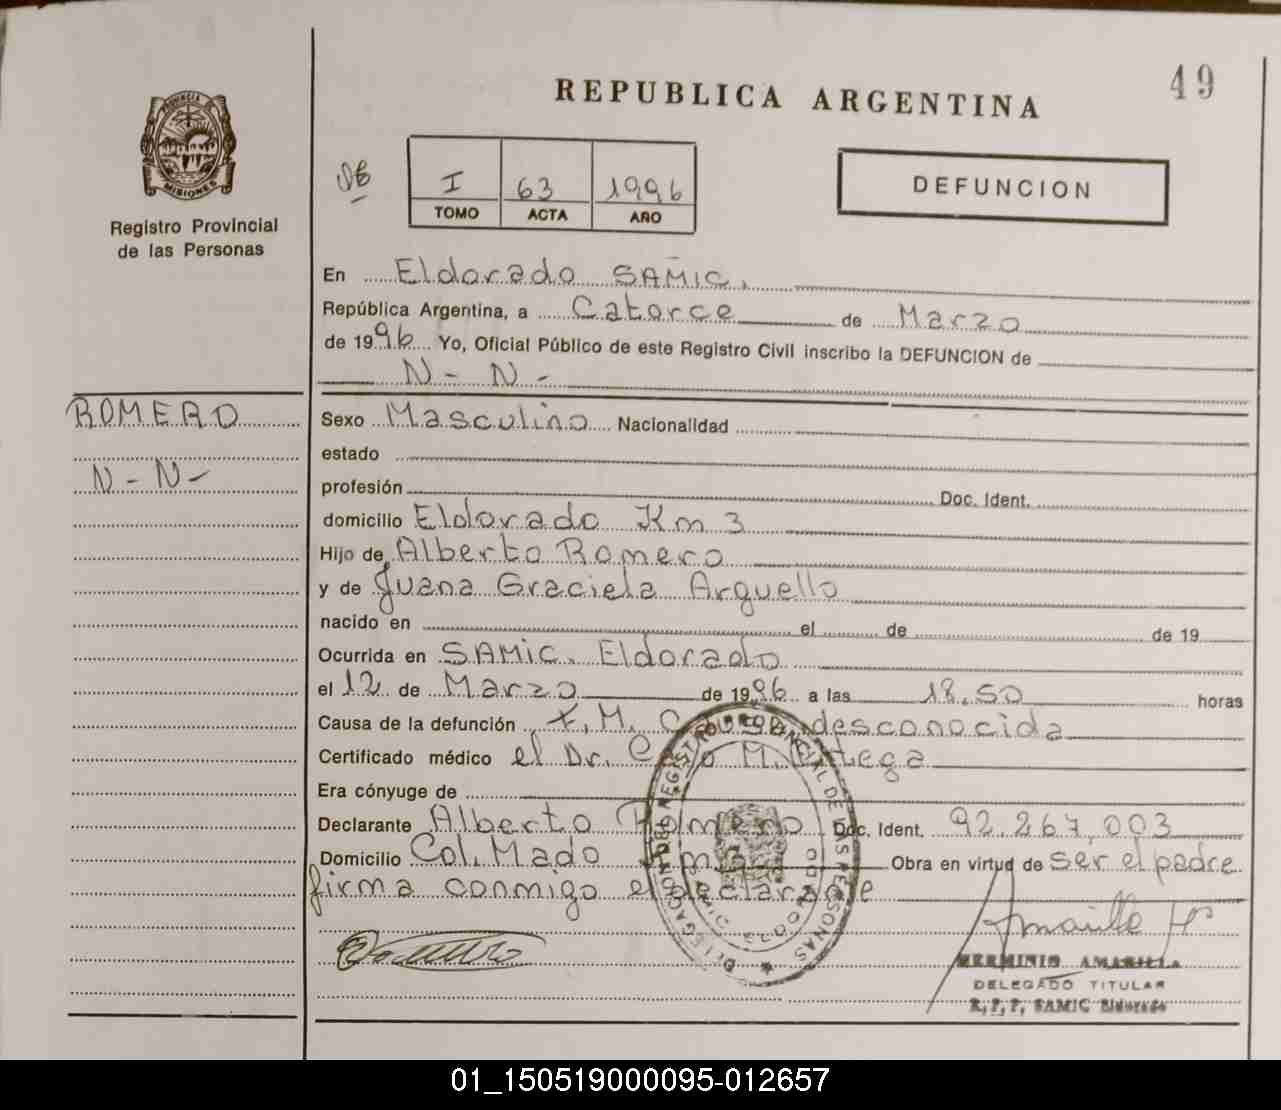 49
REPUBLICA ARGENTINA
PROVINCIA DE
MISIONES
Registro Provincial
de las Personas
I 63 1996
TOMO ACTA AÑO
DEFUNCION
En Eldorado SAMIC,
República Argentina, a Catorce de Marzo
de 1996 Yo, Oficial Público de este Registro Civil inscribo la DEFUNCION de
N - N -
ROMERO
N - N -
Sexo Masculino Nacionalidad
estado
profesión Doc. Ident.
domicilio Eldorado Km 3
Hijo de Alberto Romero
y de Juana Graciela Arguello
nacido en el de de 19
Ocurrida en SAMIC. Eldorado
el 12 de Marzo de 1996 a las 18,50 horas
Causa de la defunción F.M. Causa desconocida
Certificado médico el Dr. M. Ortega
Era cónyuge de
Declarante Alberto Romero Doc. Ident. 92.267.003
Domicilio Col. Mado Obra en virtud de ser el padre
firma conmigo el declarante
DELEGACION DEL REGISTRO PROVINCIAL DE LAS PERSONAS
HERMINIO AMARILLA
DELEGADO TITULAR
R.P.P. SAMIC Eldorado
01_150519000095-012657